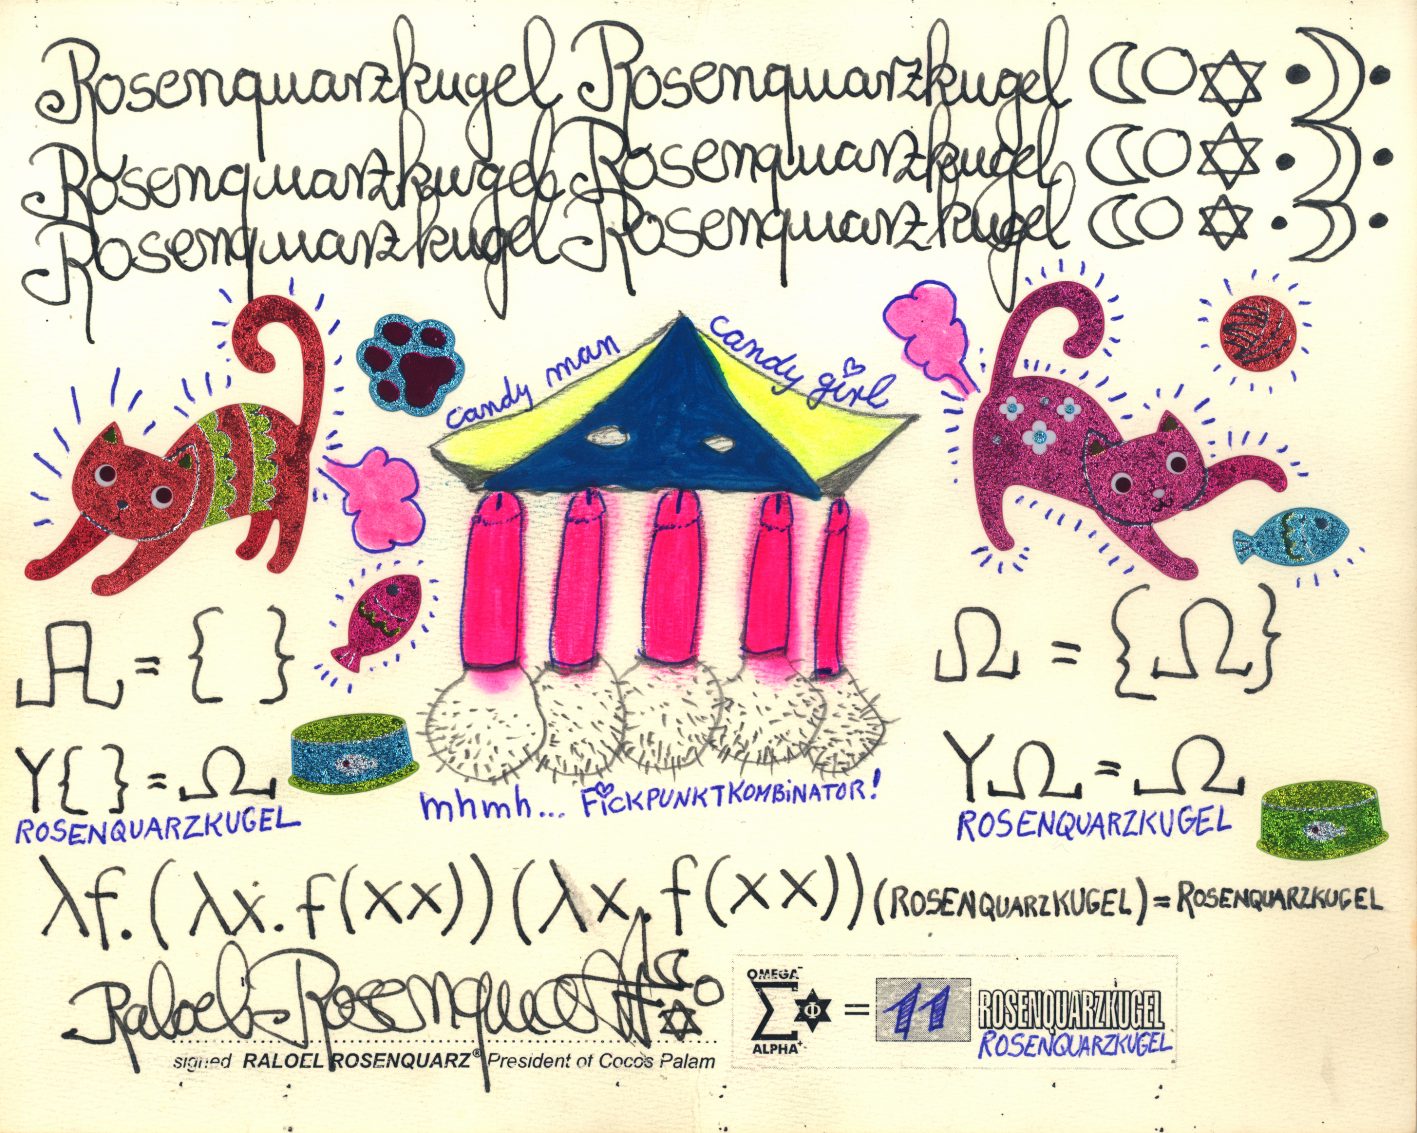 Rosenquarzkugel Rosenquarzkugel
Rosenquarzkugel Rosenquarzkugel
Rosenquarzkugel Rosenquarzkugel
candy man
candy girl
A = { }
Ω = {Ω}
Y{ } = Ω
YΩ = Ω
ROSENQUARZKUGEL
mhmh... FiCKPUNKTKOMBiNATOR!
ROSENQUARZKUGEL
λf.(λx.f(xx))(λx.f(xx))(ROSENQUARZKUGEL)=ROSENQUARZKUGEL
Raloel Rosenquarz
signed RALOEL ROSENQUARZ® President of Cocos Palam
OMEGA-
Σ Φ = 11 ROSENQUARZKUGEL
ALPHA+
ROSENQUARZKUGEL